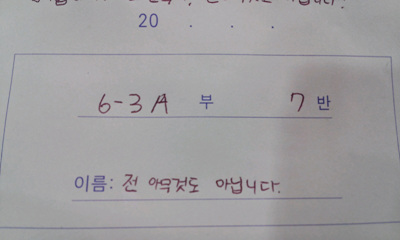 20 . . .
6-3 A 부 7 반
이름: 전 아무것도 아닙니다.